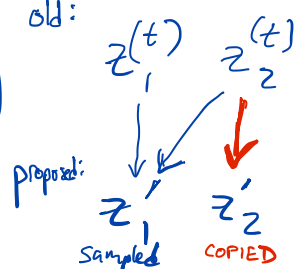 old:
z₁^(t) z₂^(t)
proposed:
z₁′ z₂′
sampled COPIED